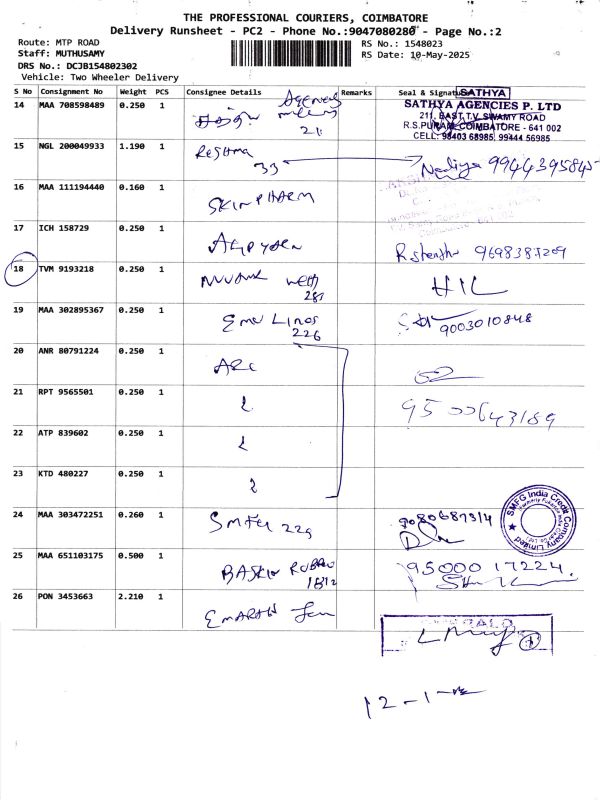 THE PROFESSIONAL COURIERS, COIMBATORE
Delivery Runsheet - PC2 - Phone No.:9047080280 - Page No.:2
Route: MTP ROAD
RS No.: 1548023
Staff: MUTHUSAMY
RS Date: 10-May-2025
DRS No.: DCJB154802302
Vehicle: Two Wheeler Delivery
S No Consignment No Weight PCS Consignee Details Remarks Seal & Signature
14 MAA 708598489 0.250 1 Agencies
21
SATHYA
SATHYA AGENCIES P. LTD
211, EAST T.V. SWAMY ROAD
R.S.PURAM, COIMBATORE - 641 002
CELL: 98403 68985, 99444 56985
15 NGL 200049933 1.190 1 Reshma
33 Nadiya 9944395845
16 MAA 111194440 0.160 1 SKINPHARM
17 ICH 158729 0.250 1 9698387209
18 TVM 9193218 0.250 1
281
19 MAA 302895367 0.250 1 Emu Lines
226 9003010848
20 ANR 80791224 0.250 1 ARC
21 RPT 9565501 0.250 1 9500643189
22 ATP 839602 0.250 1
23 KTD 480227 0.250 1
24 MAA 303472251 0.260 1 SMFG 229 9080687314
SMFG India Credit Company Limited
25 MAA 651103175 0.500 1 BASKIN ROBBIN 9500017224
26 PON 3453663 2.210 1
12-1-